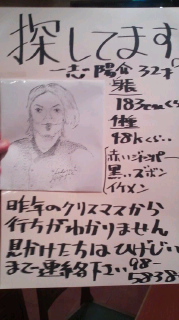 探してます
一志陽介 32才
身長
183cmくらい
体重
48kくらい
赤いジャンパー
黒いズボン
イケメン
昨年のクリスマスから
行方がわかりません
見かけた方は
まで連絡下さい 98-
5838